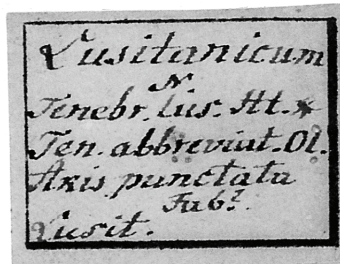 Lusitanicum
N
Tenebr. lus. Ht. *
Ten. abbreviat. Ol.
Akis punctata
Fabr.
Lusit.